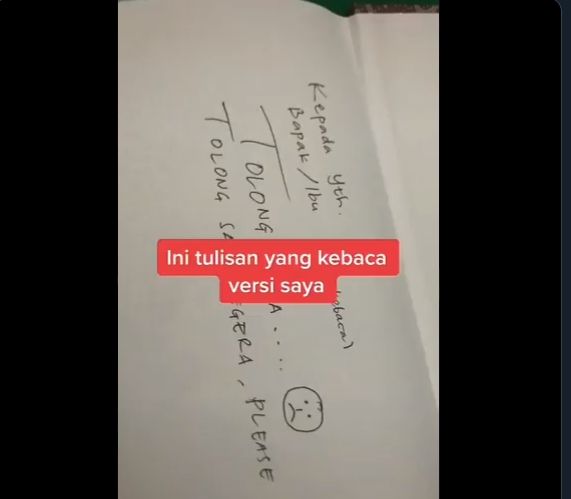 Kepada yth.
Bapak/Ibu
TOLONG
TOLONG PLEASE
Ini tulisan yang kebaca
versi saya